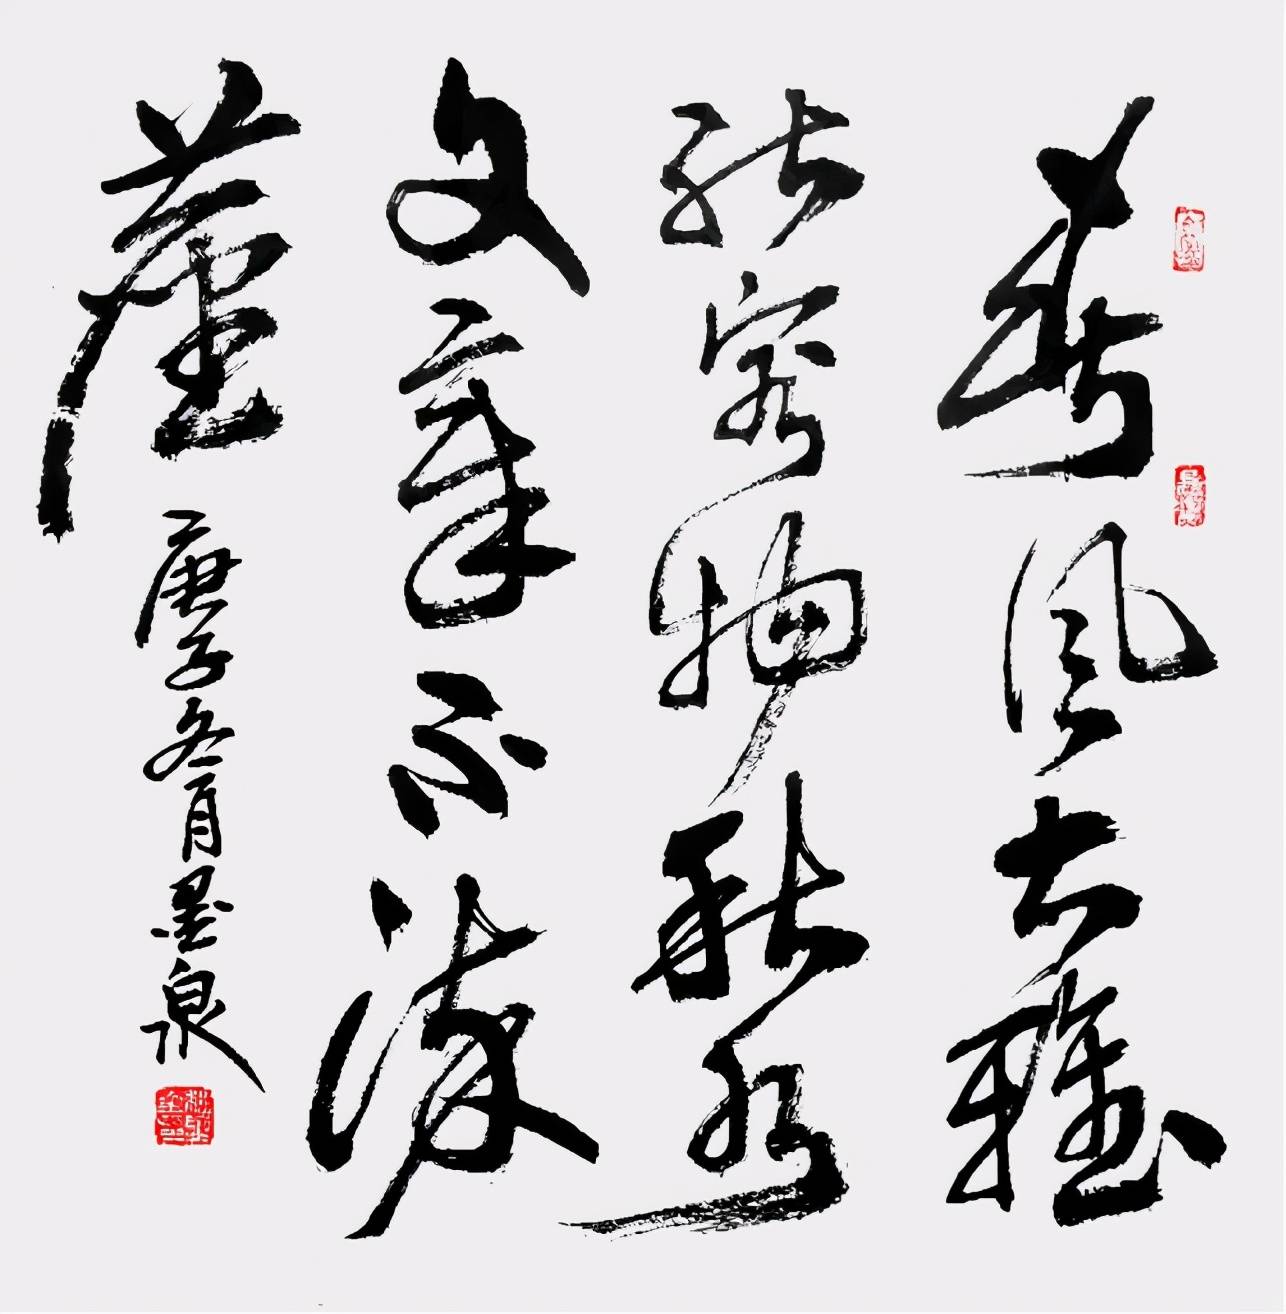 春风大雅
能容物秋水
文章不染
尘 庚子冬月墨泉